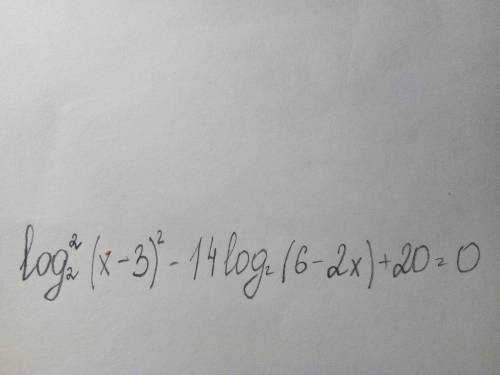 log₂² (x-3)² - 14 log₂ (6-2x) + 20 = 0